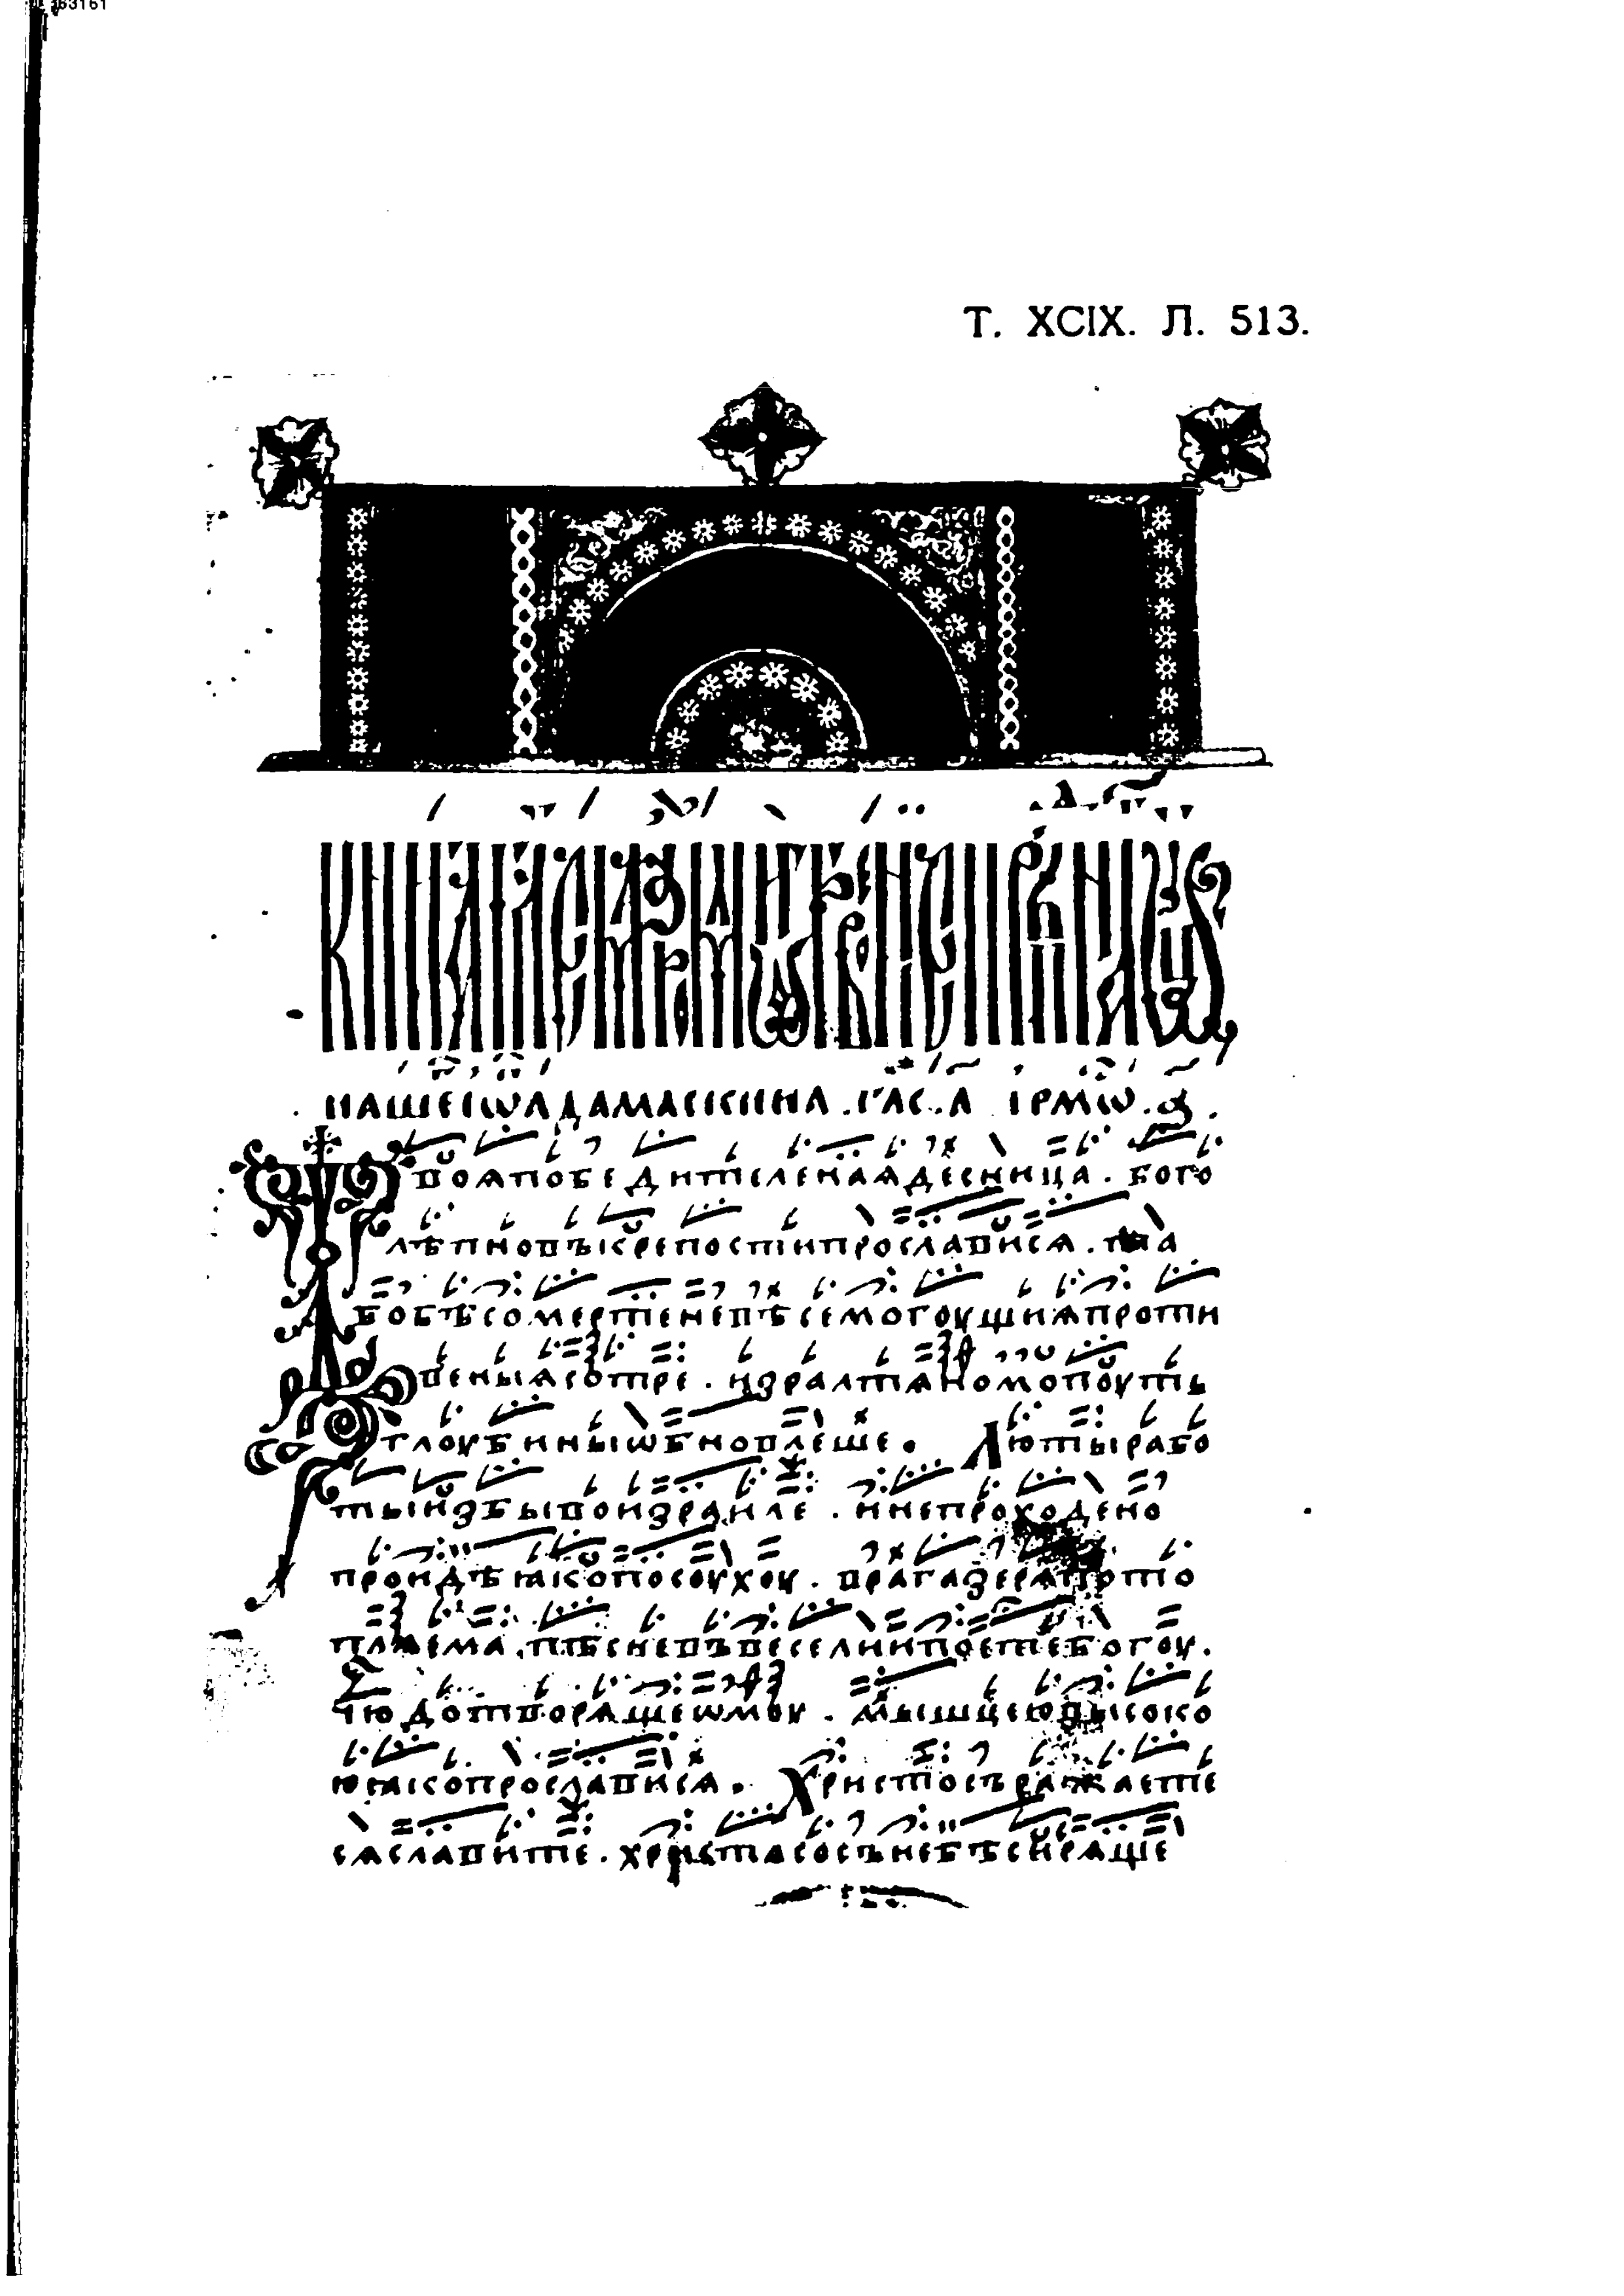 63161
Т. XCIX. Л. 513.
нашеіѡанадамаскина . глс . а ірмѡ . ꙁ .
Твоѧпобедителенаѧдесница . бого
лѣпновъкрепостипрославися . та
бобѣсомертеневьсемогоущиѧпроти
веныѧсотре . изралтѧномопоуть
глоубиныѡбновлеше . Лютырабо
тыизбывоизраиле . инепроходено
проидѣꙗкопосоухоу . врагазерѧпото
пляема . пѣсневъвеселиипоетебогоу .
чюдотворѧщеѡмоу . мышцеювысоко
юꙗкопрославися . Христосъражаете
сѧславите . христасосънебѣсирѧще